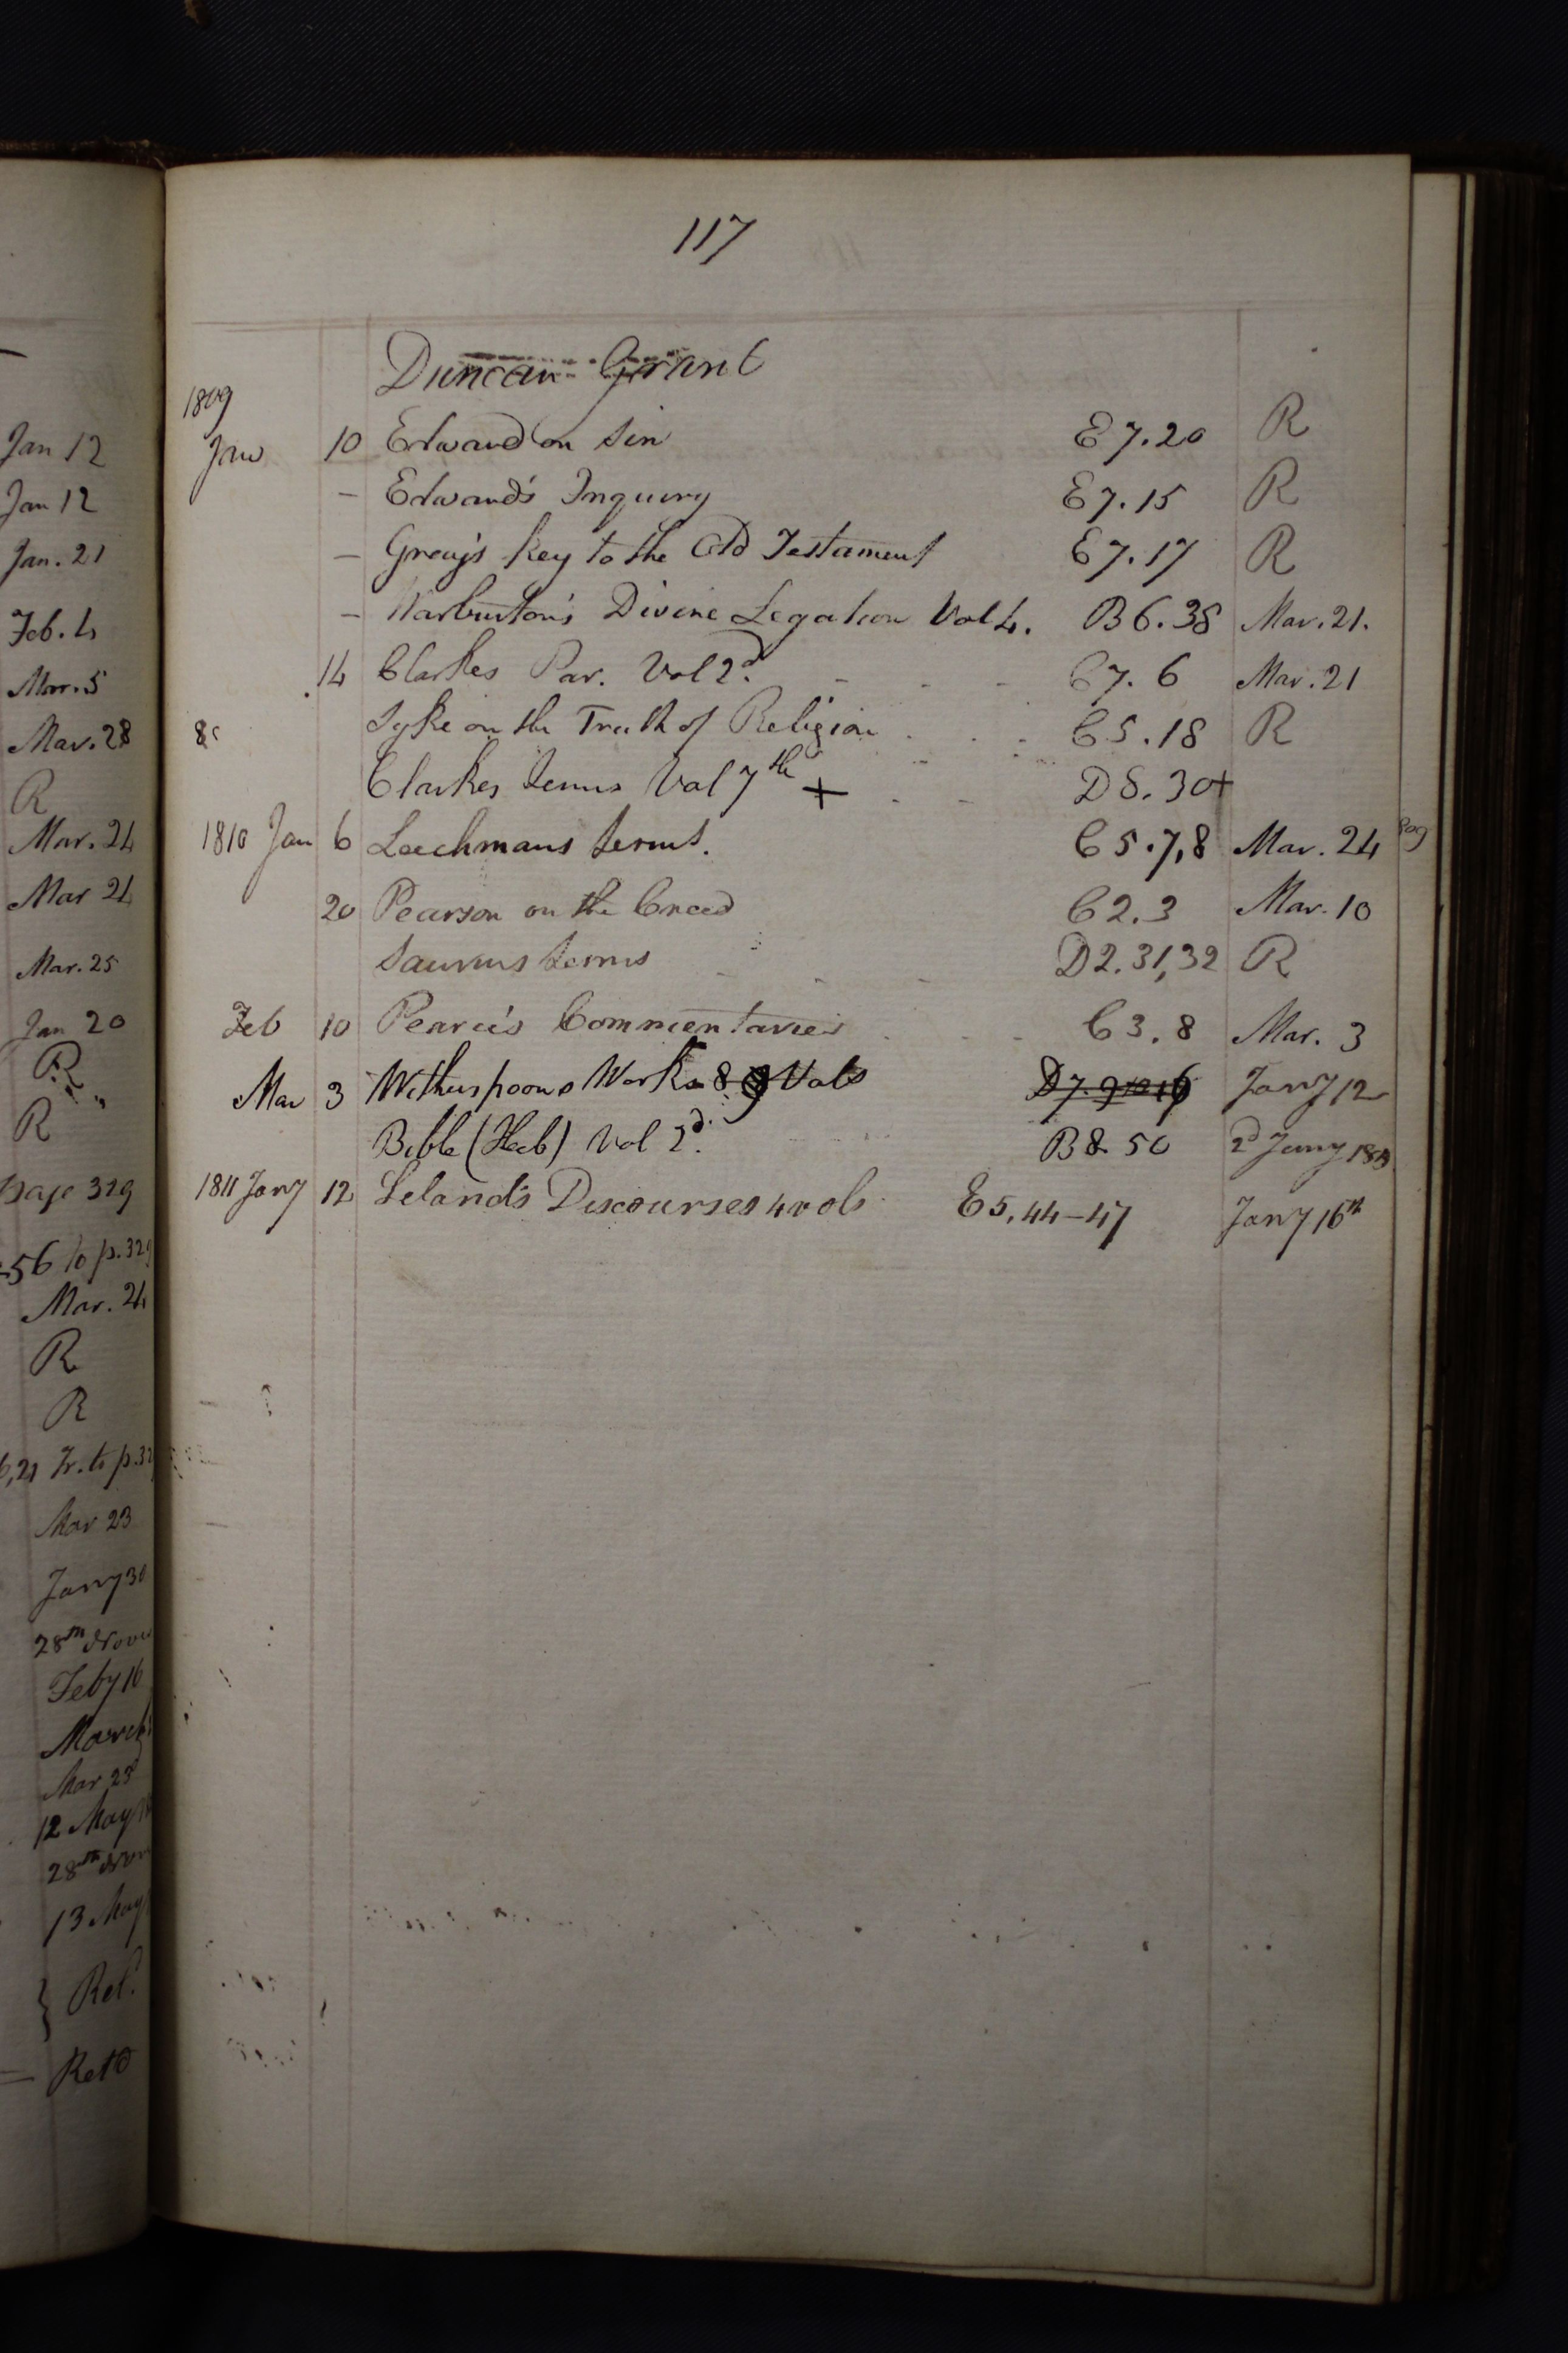 117
Duncan Grant
1809
Jan 10 Edward on Sin E7.20 R
— Edward's Inquiry E7.15 R
— Grey's Key to the Old Testament E7.17 R
— Warburton's Divine Legation Vol 4. B6.38 Mar. 21.
14 Clarkes Par. Vol 2d. C7.6 Mar. 21
Syke on the Truth of Religion C5.18 R
Clarkes Serms Vol 7th + D8.30+
1810 Jan 6 Leechmans Serms. C5.7,8 Mar. 24
20 Pearson on the Creed C2.3 Mar. 10
Saurins Serms D2.31,32 R
Feb 10 Pearce's Commentaries C3.8 Mar. 3
Mar 3 Witherspoons Works 8 9 Vols D7.9 Jany 12
Bible (Heb) Vol 2d. B8.50 2d Jany
1811 Jany 12 Leland's Discourses 4 vols E5.44-47 Jany 16th
Jan 12
Jan 12
Jan. 21
Feb. 4
Mar. 5
Mar. 28
R
Mar. 24
Mar 24
Mar. 25
Jan 20
R
R
page 329
56 to p. 329
Mar. 24
R
R
6,21 Tr. to p.
Mar 23
Jany 30
28th Nov
Feby 16
March
Mar 23
12 May
28th
13 May
} Ret.
— Retd